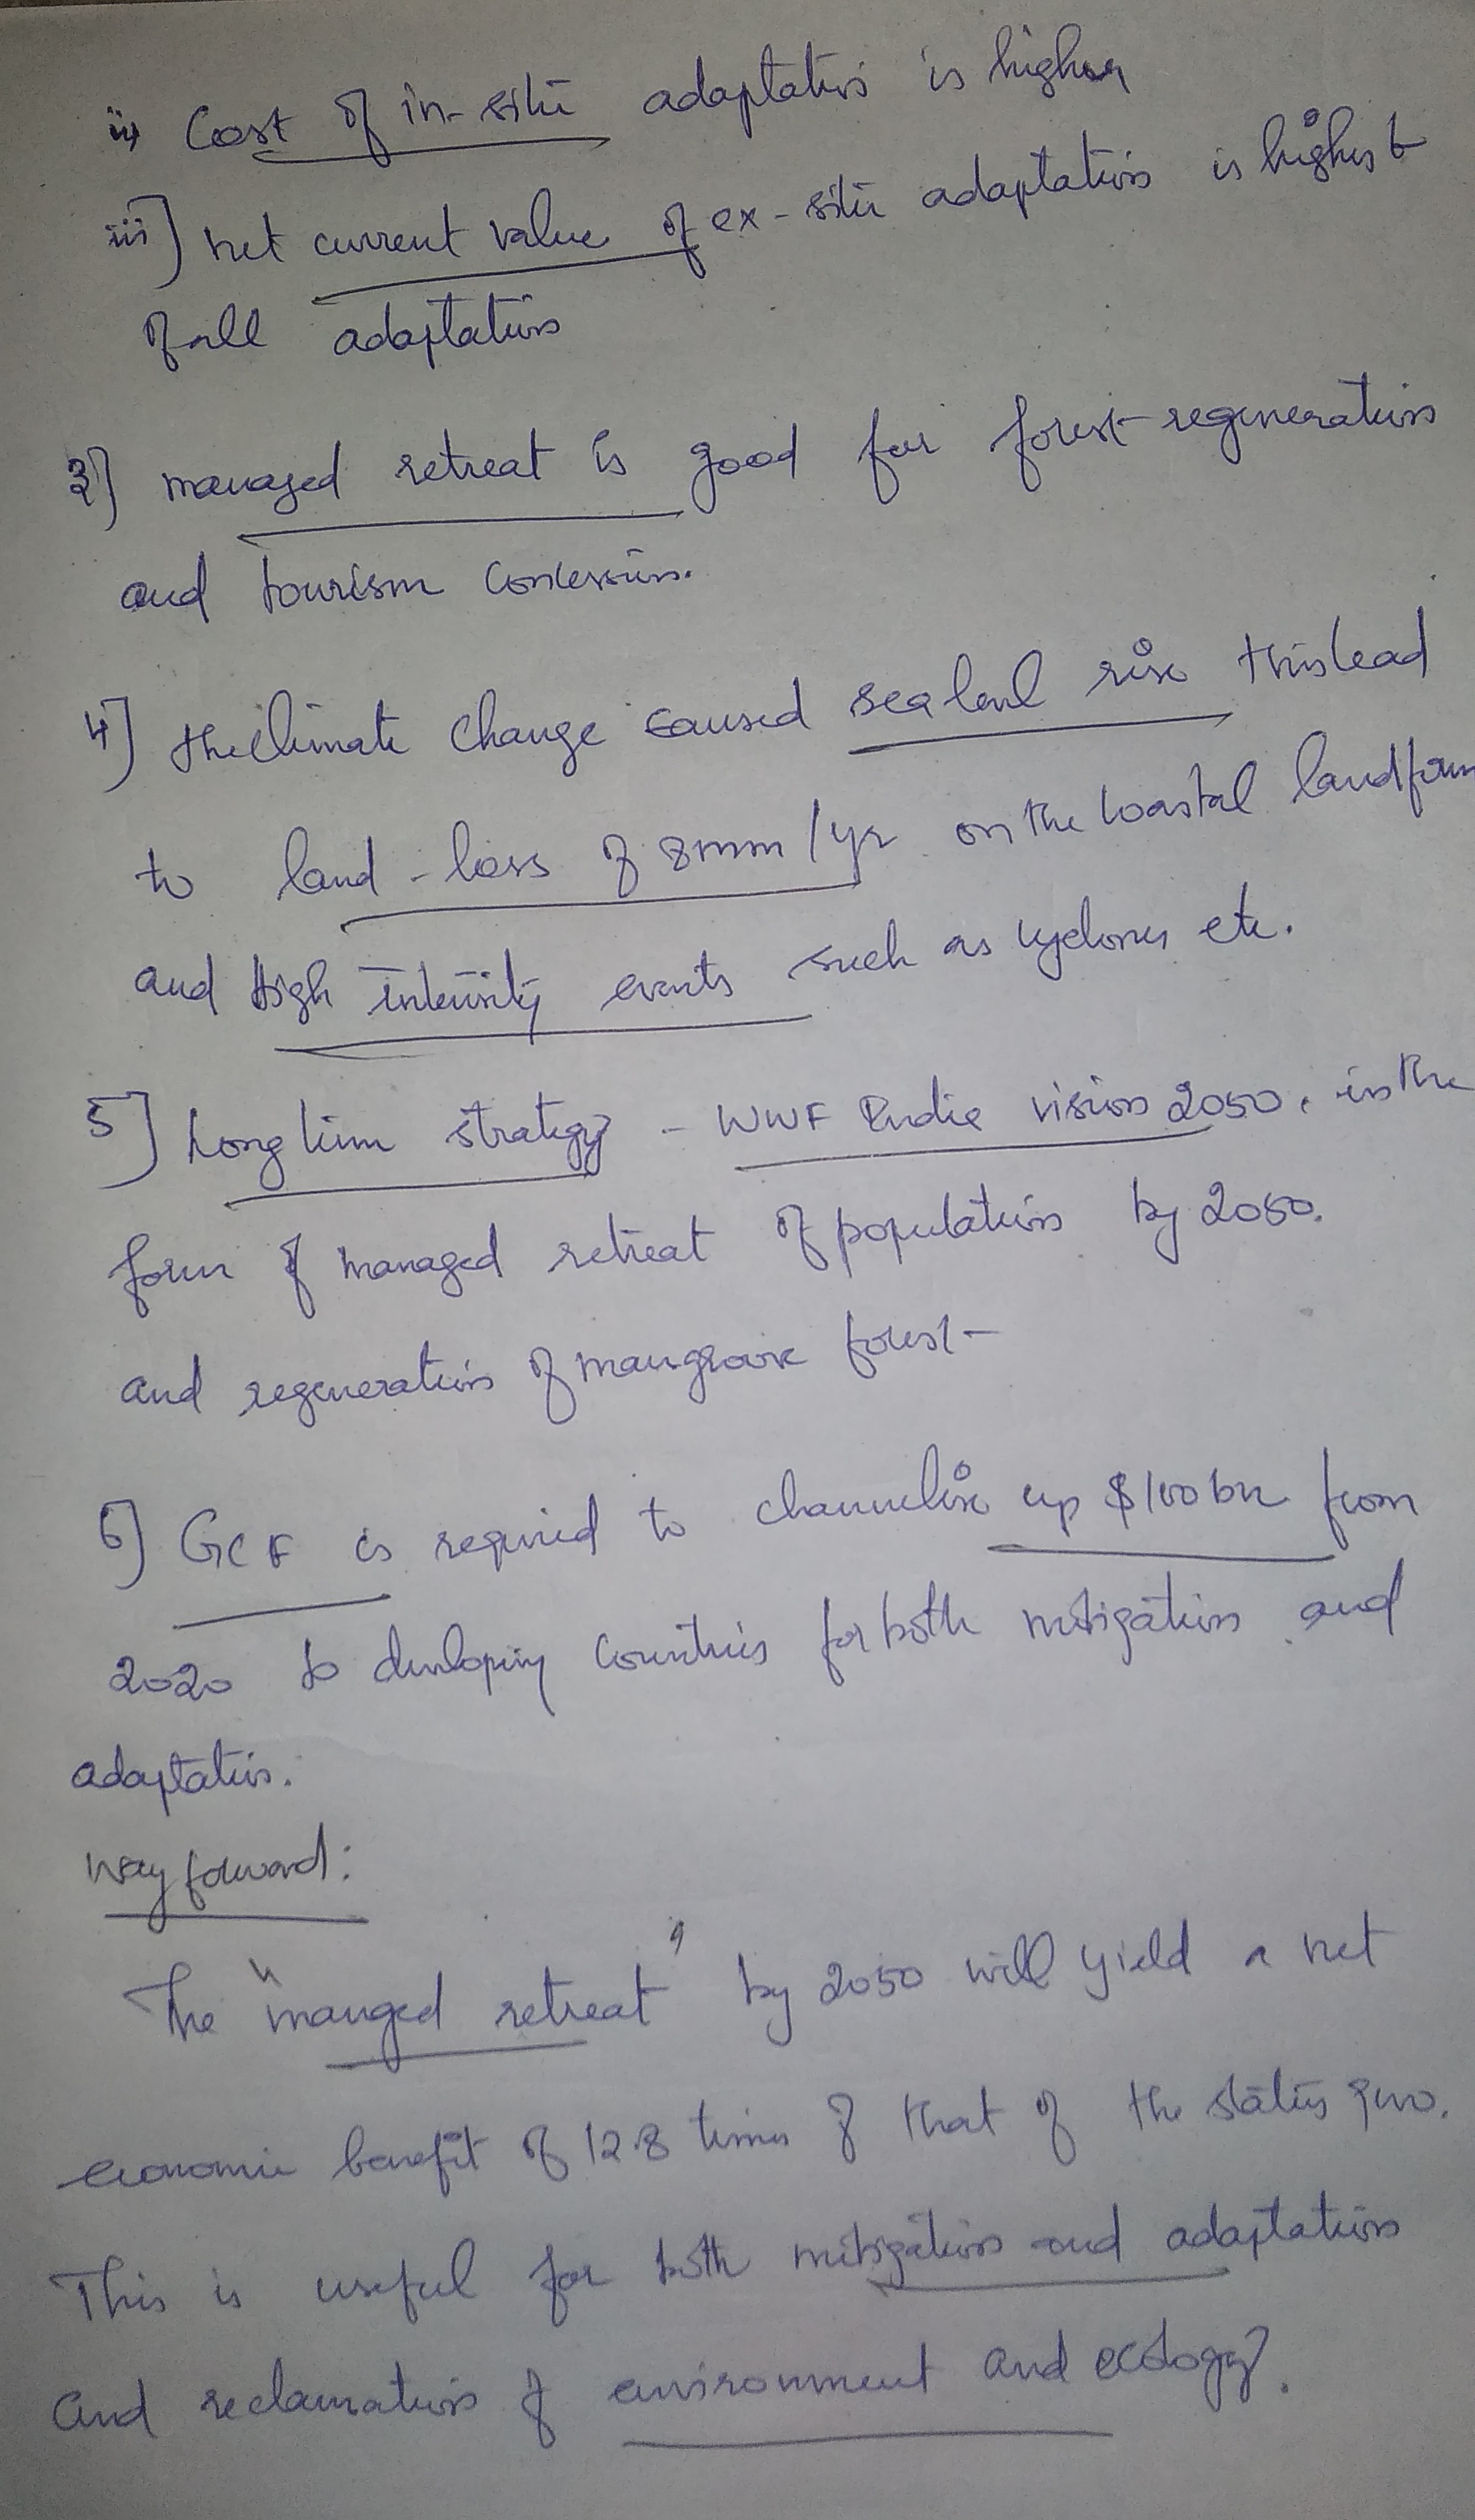 ii) Cost of in-situ adaptation is higher
iii] net current value of ex-situ adaptation is highest
of all adaptation
3] managed retreat is good for forest regeneration
and tourism concession.
4] the climate change caused sea level rise this lead
to land-loss of 8mm/yr on the coastal landform
and high intensity events such as cyclones etc.
5] Long term strategy - WWF India vision 2050. in the
form of managed retreat of population by 2050.
and regeneration of mangrove forest-
6] GCF is required to channelise up $100bn from
2020 to developing countries for both mitigation and
adaptation.
way forward:
The "manged retreat" by 2050 will yield a net
economic benefit of 12.8 times of that of the status quo.
This is useful for both mitigation and adaptation
and reclamation of environment and ecology.